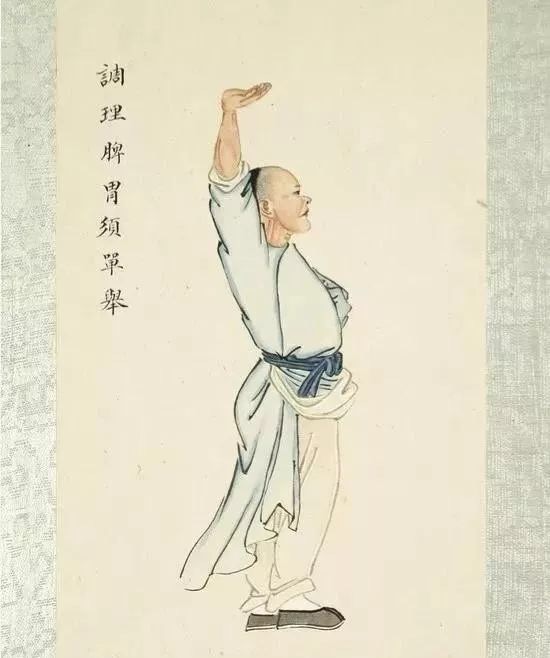 調理脾胃須單舉